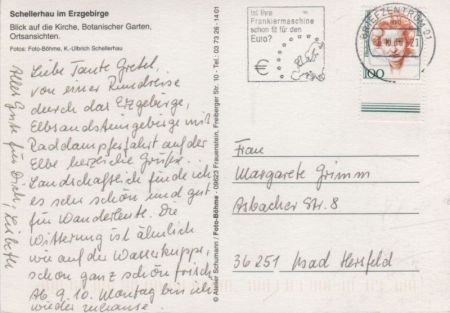 Schellerhau im Erzgebirge
Blick auf die Kirche, Botanischer Garten,
Ortsansichten.
Fotos: Foto-Böhme, K.-Ulbrich Schellerhau
Liebe Tante Gretel,
von einer Rundreise
durch das Erzgebirge,
Elbsandsteingebirge mit
Raddampferfahrt auf der
Elbe herzliche Grüße.
Landschaftlich finde ich
es sehr schön und gut
für Wandersleute. Die
Witterung ist ähnlich
wie auf der Wasserkuppe,
schon ganz schön frisch.
Ab 9.10. Montag bin ich
wieder zuhause.
Alles Gute für Dich,
© Atelier Schumann / Foto-Böhme · 09623 Frauenstein, Freiberger Str. 10 · Tel.: 03 73 26 14 01
Ist Ihre
Frankiermaschine
schon fit für den
Euro?
€
BRIEFZENTRUM 01
21
100
Frau
Margarete Grimm
Asbacher Str. 8
36251 Bad Hersfeld